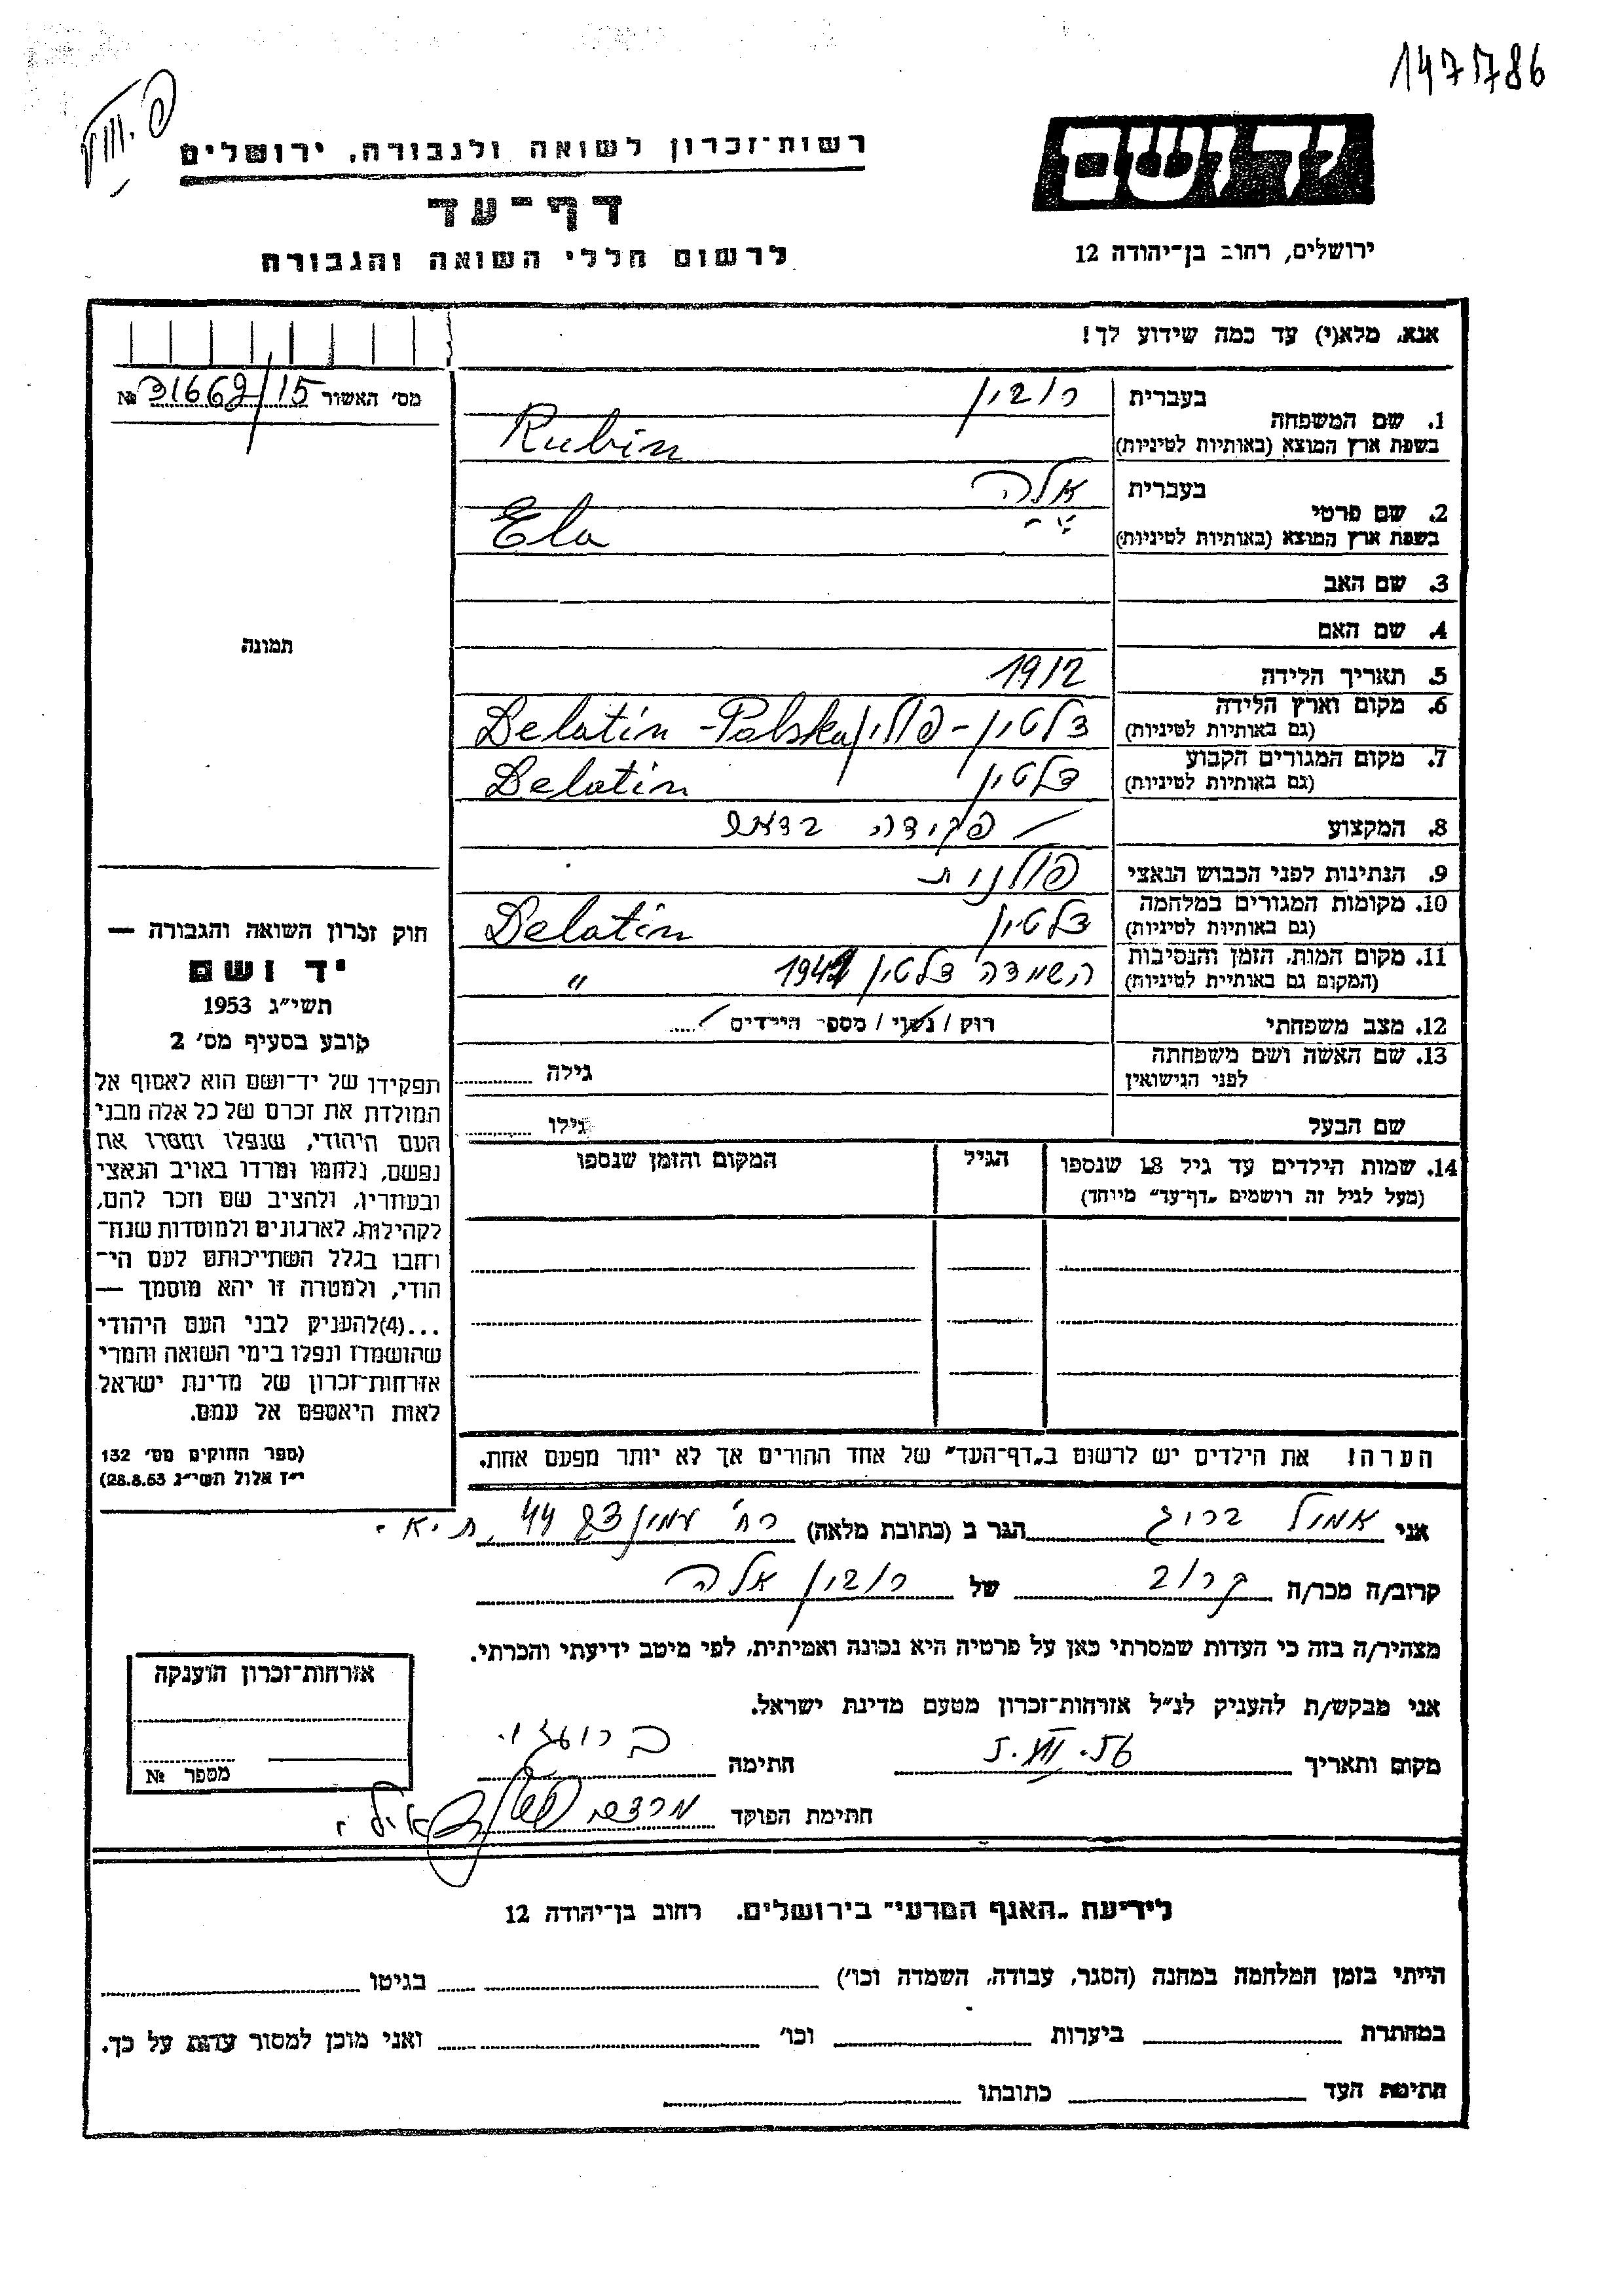 147786
יד ושם
רשות־זכרון לשואה ולגבורה, ירושלים
דף־עד
ירושלים, רחוב בן־יהודה 12
לרשום חללי השואה והגבורה
אנא, מלא(י) עד כמה שידוע לך!
מס׳ האשור 31662/15 №
בעברית רובין
1. שם המשפחה
בשפת ארץ המוצא (באותיות לטיניות) Rubin
בעברית אלה
2. שם פרטי
בשפת ארץ המוצא (באותיות לטיניות) Ela
3. שם האב
4. שם האם
תמונה
5. תאריך הלידה 1912
6. מקום וארץ הלידה
(גם באותיות לטיניות) דלטין - פולין Delatin - Polska
7. מקום המגורים הקבוע
(גם באותיות לטיניות) דלטין Delatin
8. המקצוע פקידה בדאר
9. הנתינות לפני הכבוש הנאצי פולנית
10. מקומות המגורים במלחמה
(גם באותיות לטיניות) דלטין Delatin
11. מקום המות, הזמן והנסיבות
(המקום גם באותיית לטיניות) השמדה דלטין 1941 "
12. מצב משפחתי רוק / נשוי / מספר הילדים
13. שם האשה ושם משפחתה
לפני הנישואין גילה
שם הבעל גילו
14. שמות הילדים עד גיל 18 שנספו הגיל המקום והזמן שנספו
(מעל לגיל זה רושמים „דף־עד״ מיוחד)
הערה! את הילדים יש לרשום ב„דף־העד״ של אחד ההורים אך לא יותר מפעם אחת.
חוק זכרון השואה והגבורה —
יד ושם
תשי״ג 1953
קובע בסעיף מס׳ 2
תפקידו של יד־ושם הוא לאסוף אל
המולדת את זכרם של כל אלה מבני
העם היהודי, שנפלו ומסרו את
נפשם, נלחמו ומרדו באויב הנאצי
ובעוזריו, ולהציב שם וזכר להם,
לקהילות, לארגונים ולמוסדות שנח־
רחבו בגלל השתייכותם לעם הי־
הודי, ולמטרה זו יהא מוסמך —
...(4)להעניק לבני העם היהודי
שהושמדו ונפלו בימי השואה והמרי
אזרחות־זכרון של מדינת ישראל
לאות היאספם אל עמם.
(ספר החוקים מס׳ 132
י״ז אלול תשי״ג 28.8.53)
אני אמיל ברוג הגר ב (כתובת מלאה) רח׳ 44 ת״א
קרוב/ה מכר/ה קרוב של רובין אלה
מצהיר/ה בזה כי העדות שמסרתי כאן על פרטיה היא נכונה ואמיתית, לפי מיטב ידיעתי והכרתי.
אני מבקש/ת להעניק לנ״ל אזרחות־זכרון מטעם מדינת ישראל.
מקום ותאריך 5.VII.56 חתימה
חתימת הפוקד מרדכי
אזרחות־זכרון הוענקה
מספר №
לידיעת „האגף המדעי״ בירושלים, רחוב בן־יהודה 12
הייתי בזמן המלחמה במחנה (הסגר, עבודה, השמדה וכו׳) בגיטו
במחתרת ביערות וכו׳ ואני מוכן למסור עדות על כך.
חתימת העד כתובתו